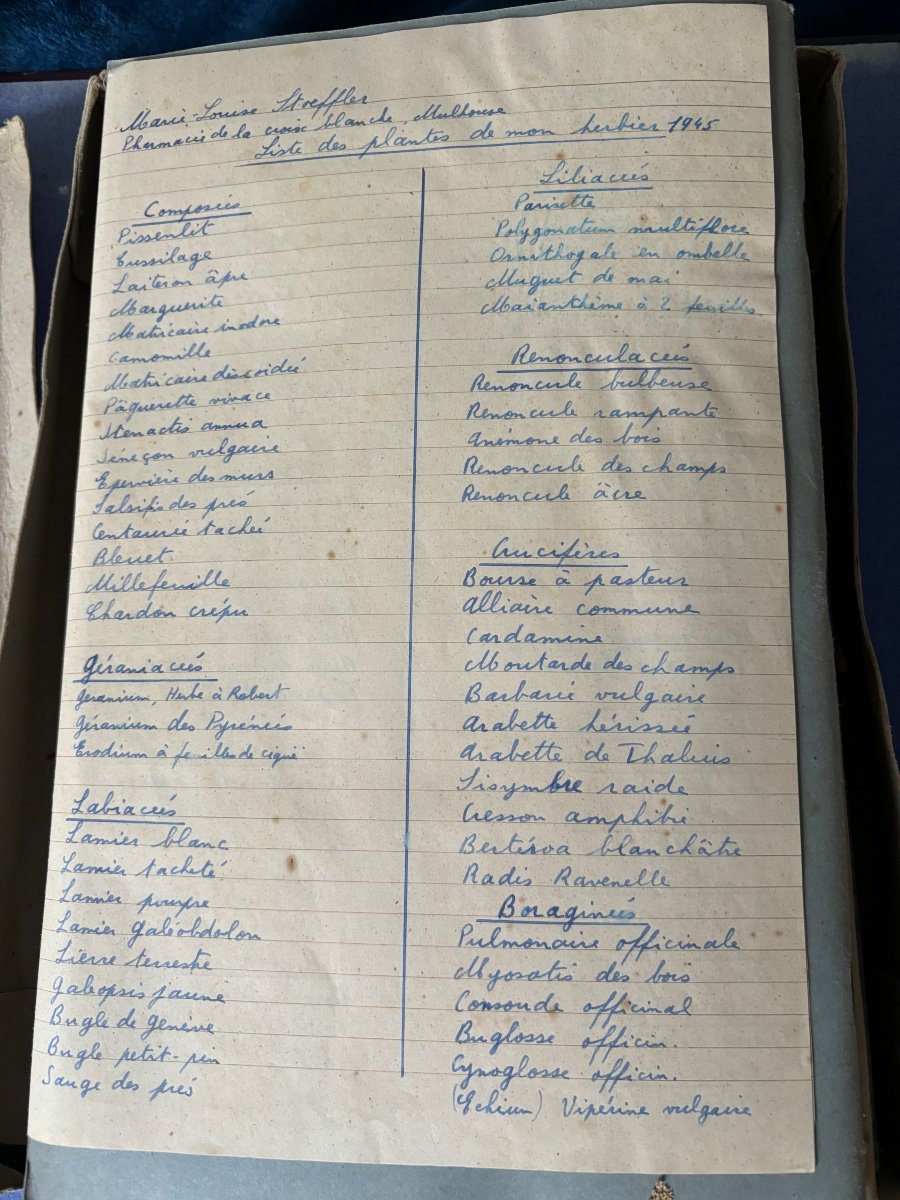 Marie-Louise Stoeffler
Pharmacie de la croix blanche, Mulhouse
Liste des plantes de mon herbier 1945
Composées
Pissenlit
Tussilage
Laiteron âpre
Marguerite
Matricaire inodore
Camomille
Matricaire discoidée
Pâquerette vivace
Stenactis annua
Séneçon vulgaire
Epervière des murs
Salsifis des prés
Centaurée tachée
Bleuet
Millefeuille
Chardon crépu
Géraniacées
Geranium, Herbe à Robert
Géranium des Pyrénées
Erodium à feuilles de ciguë
Labiacées
Lamier blanc
Lamier tacheté
Lamier pourpre
Lamier Galéobdolon
Lierre terrestre
Galeopsis jaune
Bugle de Genève
Bugle petit-pin
Sauge des prés
Liliacées
Parisette
Polygonatum multiflore
Ornithogale en ombelle
Muguet de mai
Maïanthème à 2 feuilles
Renonculacées
Renoncule bulbeuse
Renoncule rampante
Anémone des bois
Renoncule des champs
Renoncule âcre
Crucifères
Bourse à pasteur
Alliaire commune
Cardamine
Moutarde des champs
Barbarée vulgaire
Arabette hérissée
Arabette de Thalius
Sisymbre raide
Cresson amphibie
Bertéroa blanchâtre
Radis Ravenelle
Boraginées
Pulmonaire officinale
Myosotis des bois
Consoude officinal
Buglosse officin.
Cynoglosse officin.
(Echium) Vipérine vulgaire